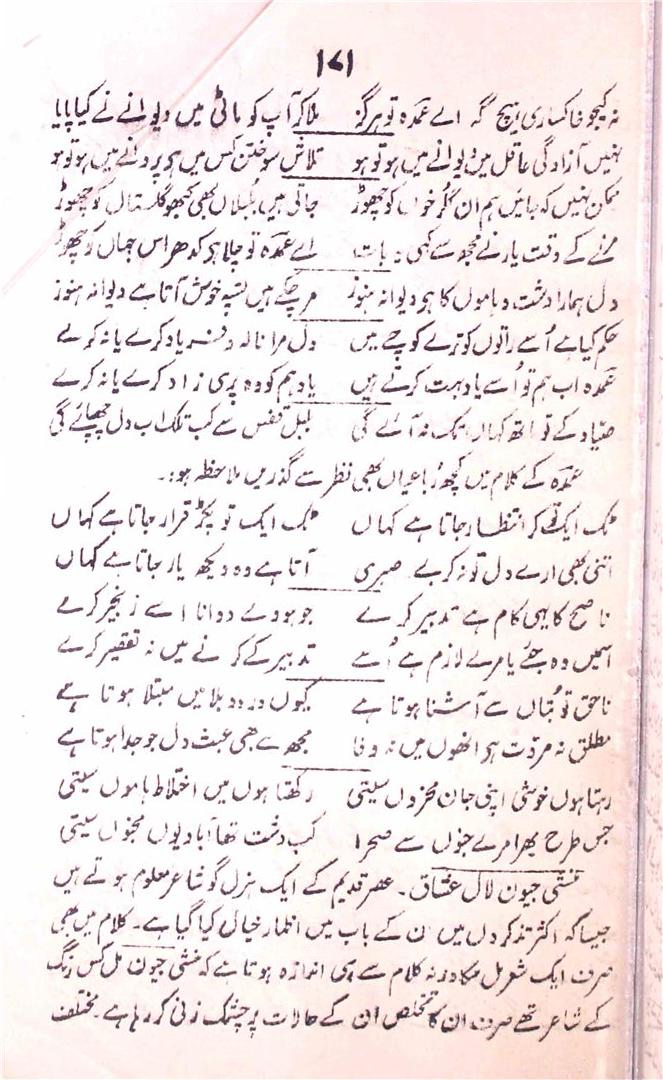 ۱۷۱
نہ کیجو خاکساری ہیچ گہ اے عمدہ تو ہرگز ملا کر آپ کو ماٹی میں دیوانے نے کیا پایا
نہیں آزادگی عاقل میں دیوانے میں ہو تو ہو تلاش سوختن کس میں ہو پروانے میں ہو تو ہو
ممکن نہیں کہ جائیں ہم ان گلرخوں کو چھوڑ جاتی ہیں بلبلاں بھی کبھو گلستاں کو چھوڑ
مرنے کے وقت یار نے مجھ سے کہی یہ بات اے عمدہ تو چلا ہو کدھر اس جہاں کو چھوڑ
دل ہمارا دشت و ہاموں کا ہو دیوانہ ہنوز مر چکے ہیں تسپہ خوش آتا ہے دیوانہ ہنوز
حکم کیا ہے اُسے راتوں کو ترے کوچے میں دل مرا نالہ و فریاد کرے یا نہ کرے
عمدہ اب ہم تو اُسے یاد بہت کرتے ہیں یاد ہم کو وہ پری زاد کرے یا نہ کرے
صیاد کے تو ہاتھ کہاں تک نہ آئے گی بلبل قفس سے کب تلک اب دل چھپائے گی
عمدہ کے کلام میں کچھ رباعیاں بھی نظر سے گذریں ملاحظہ ہو:۔
ٹک ایک تو کر انتظار جاتا ہے کہاں ٹک ایک تو پکڑ قرار جاتا ہے کہاں
اتنی بھی ارے دل تو نہ کر بے صبری آتا ہے وہ دیکھ یار جاتا ہے کہاں
ناصح کا یہی کام ہے تدبیر کرے جو ہووے دوانا اسے زنجیر کرے
اسمیں وہ جئے یا مرے لازم ہے اُسے تدبیر کے کرنے میں نہ تقصیر کرے
ناحق تو بُتاں سے آشنا ہوتا ہے کیوں درد و بلا میں مبتلا ہوتا ہے
مطلق نہ مروّت ہو انھوں میں نہ وفا مجھ سے بھی عبث دل جو جدا ہوتا ہے
رہتا ہوں خوشی اپنی جان محزوں سیتی رکھتا ہوں میں اختلاط ہاموں سیتی
جس طرح بھرا مرے جنوں سے صحرا کب دشت تھا آباد یوں مجنوں سیتی
منشی جیون لال عشاق۔ عصر قدیم کے ایک ہزل گو شاعر معلوم ہوتے ہیں
جیسا کہ اکثر تذکروں میں ان کے باب میں اظہار خیال کیا گیا ہے۔ کلام میں بھی
صرف ایک شعر مل سکا ورنہ کلام سے ہی اندازہ ہوتا ہے کہ منشی جیون مل کس رنگ
کے شاعر تھے صرف ان کا تخلص ان کے حالات پر چشمک زنی کر رہا ہے۔ مختلف